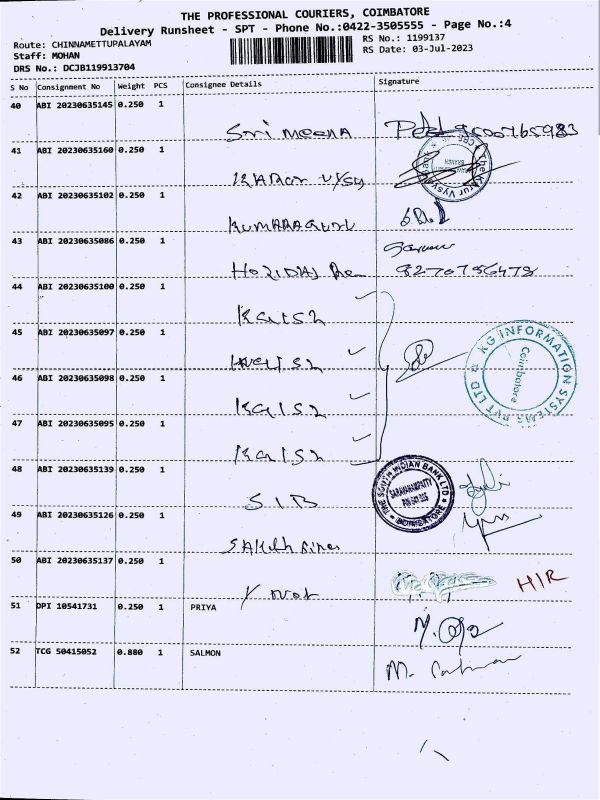 THE PROFESSIONAL COURIERS, COIMBATORE
Delivery Runsheet - SPT - Phone No.:0422-3505555 - Page No.:4
Route: CHINNAMETTUPALAYAM
RS No.: 1199137
Staff: MOHAN
RS Date: 03-Jul-2023
DRS No.: DCJB119913704
S No Consignment No Weight PCS Consignee Details Signature
40 ABI 20230635145 0.250 1
Sri Meena 9500765983
41 ABI 20230635160 0.250 1
The Karur Vysya
42 ABI 20230635102 0.250 1
KUMARAGURU
43 ABI 20230635086 0.250 1
8270786478
44 ABI 20230635100 0.250 1
45 ABI 20230635097 0.250 1
KG INFORMATION SYSTEMS PVT LTD
Coimbatore
46 ABI 20230635098 0.250 1
47 ABI 20230635095 0.250 1
48 ABI 20230635139 0.250 1
SIB
THE SOUTH INDIAN BANK LTD
SARAVANAMPATTY
COIMBATORE
49 ABI 20230635126 0.250 1
50 ABI 20230635137 0.250 1
H/R
51 DPI 10541731 0.250 1 PRIYA
52 TCG 50415052 0.880 1 SALMON